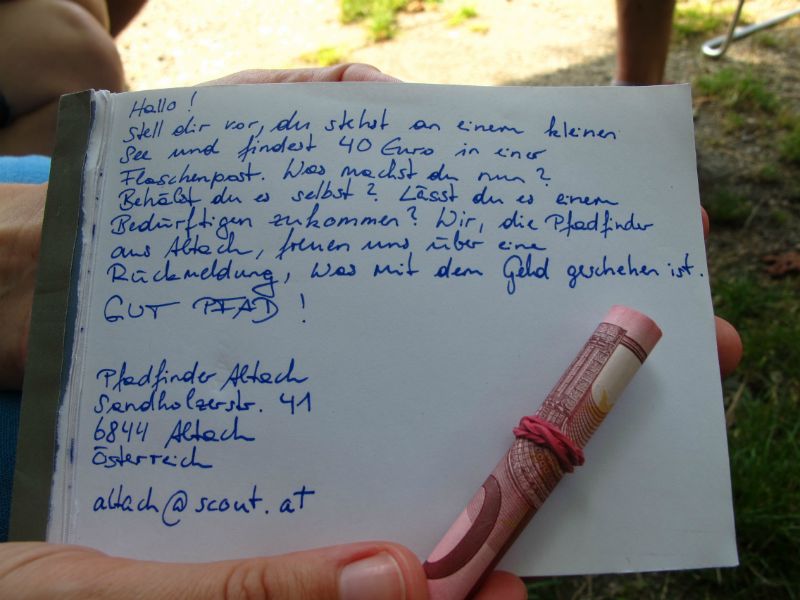 Hallo!
Stell dir vor, du stehst an einem kleinen
See und findest 40 Euro in einer
Flaschenpost. Was machst du nun?
Behältst du es selbst? Lässt du es einem
Bedürftigen zukommen? Wir, die Pfadfinder
aus Altach, freuen uns über eine
Rückmeldung, was mit dem Geld geschehen ist.
GUT PFAD!
Pfadfinder Altach
Sandholzerstr. 41
6844 Altach
Österreich
altach@scout.at